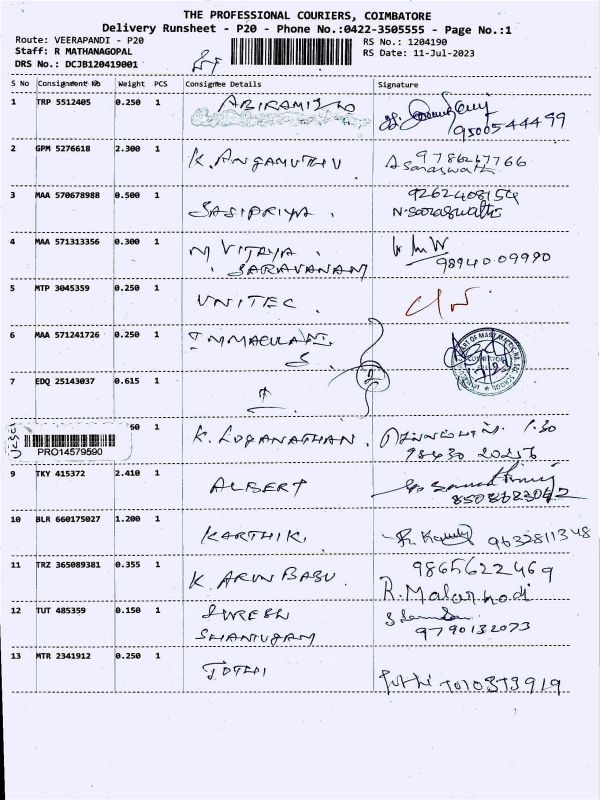 THE PROFESSIONAL COURIERS, COIMBATORE
Delivery Runsheet - P20 - Phone No.:0422-3505555 - Page No.:1
Route: VEERAPANDI - P20
RS No.: 1204190
Staff: R MATHANAGOPAL
RS Date: 11-Jul-2023
DRS No.: DCJB120419001
S No Consignment No Weight PCS Consignee Details Signature
1 TRP 5512405 0.250 1
9500544499
2 GPM 5276618 2.300 1 K. ANGAMUTHU
9786267766
3 MAA 570678988 0.500 1 SASIPRIYA.
9262408154
N. Saraswathi
4 MAA 571313356 0.300 1 M VIJAYA
SARAVANAN
98940 09990
5 MTP 3045359 0.250 1 UNITEC.
6 MAA 571241726 0.250 1
7 EDQ 25143037 0.615 1
60 1 K. LOGANATHAN. 1.30
PRO14579590
9 TKY 415372 2.410 1 ALBERT
10 BLR 660175027 1.200 1 KARTHIK 9632811348
11 TRZ 365089381 0.355 1 K ARUN BABU. 9865622469
R. Malarkodi
12 TUT 485359 0.150 1 SURESH
SHANMUGAM
9790132073
13 MTR 2341912 0.250 1 JOTHI